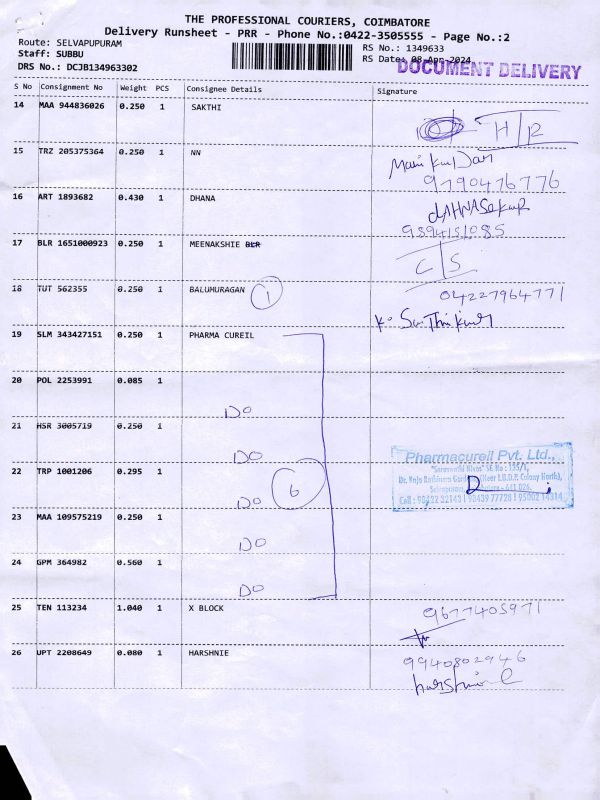 THE PROFESSIONAL COURIERS, COIMBATORE
Delivery Runsheet - PRR - Phone No.:0422-3505555 - Page No.:2
Route: SELVAPUPURAM
Staff: SUBBU
DRS No.: DCJB134963302
RS No.: 1349633
RS Date: 08-Apr-2024
DOCUMENT DELIVERY
S No Consignment No Weight PCS Consignee Details Signature
14 MAA 944836026 0.250 1 SAKTHI
H/R
15 TRZ 205375364 0.250 1 NN
9790476776
16 ART 1893682 0.430 1 DHANA
9894151085
17 BLR 1651000923 0.250 1 MEENAKSHIE BLR
C/S
18 TUT 562355 0.250 1 BALUMURAGAN 1
04227964771
19 SLM 343427151 0.250 1 PHARMA CUREIL
20 POL 2253991 0.085 1
DO
21 HSR 3005719 0.250 1
DO
Pharmacureil Pvt. Ltd.,
22 TRP 1001206 0.295 1
DO 6
23 MAA 109575219 0.250 1
DO
24 GPM 364982 0.560 1
DO
25 TEN 113234 1.040 1 X BLOCK
9677405971
26 UPT 2208649 0.080 1 HARSHNIE
9940802946